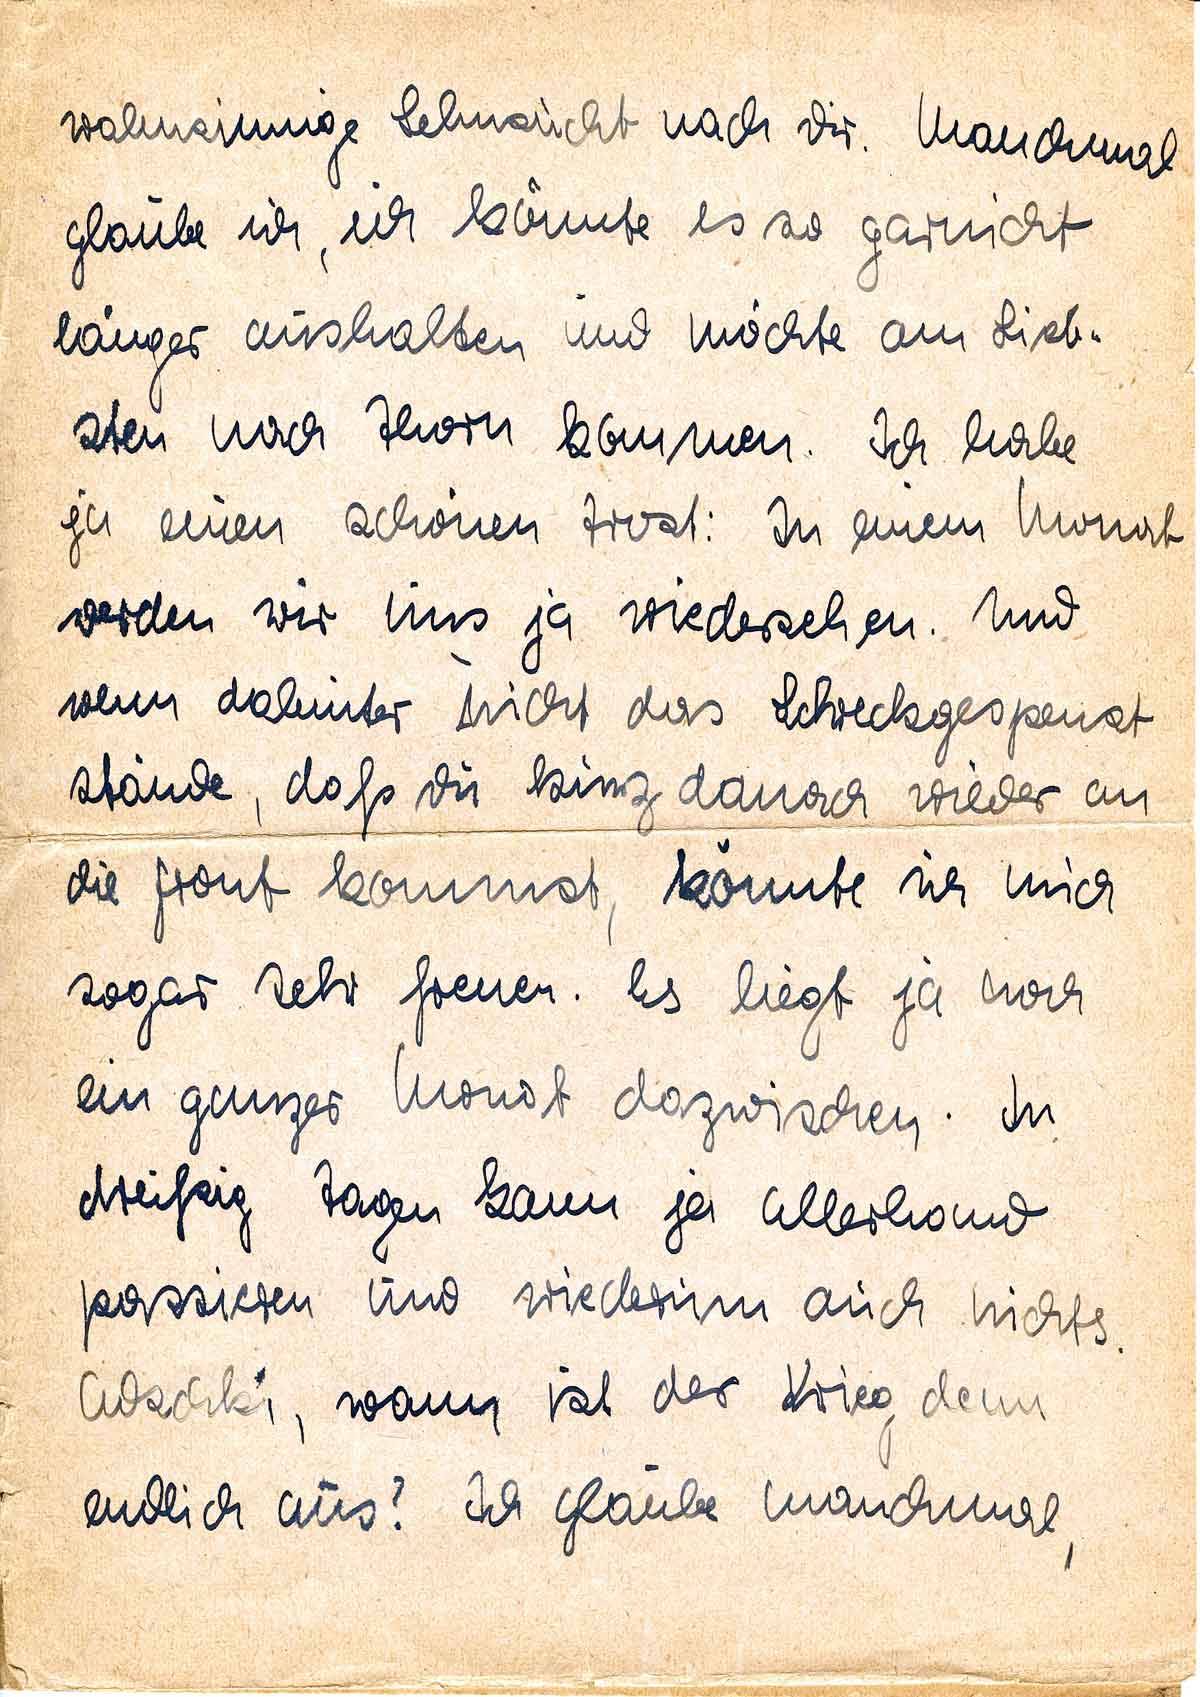 wahnsinnige Sehnsucht nach dir. Manchmal
glaube ich, ich könnte es so garnicht
länger aushalten und möchte am Lieb-
sten nach Thorn kommen. Ich habe
ja einen schönen Trost: In einem Monat
werden wir uns ja wiedersehen. Und
wenn dahinter nicht das Schreckgespenst
stände, daß du kurz danach wieder an
die Front kommst, könnte ich mich
sogar sehr freuen. Es liegt ja noch
ein ganzer Monat dazwischen. In
dreißig Tagen kann ja allerhand
passieren und wiederum auch nichts.
wann ist der Krieg denn
endlich aus? Ich glaube manchmal,